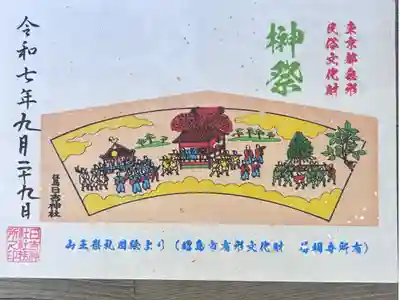 東京都無形
民俗文化財
榊祭
令和七年九月二十九日
拝島日吉神社
山王祭礼図絵より（昭島市有形文化財